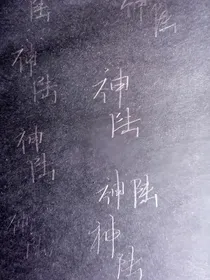 神陆
神陆
神陆
神陆
神陆
神陆
神陆
神陆